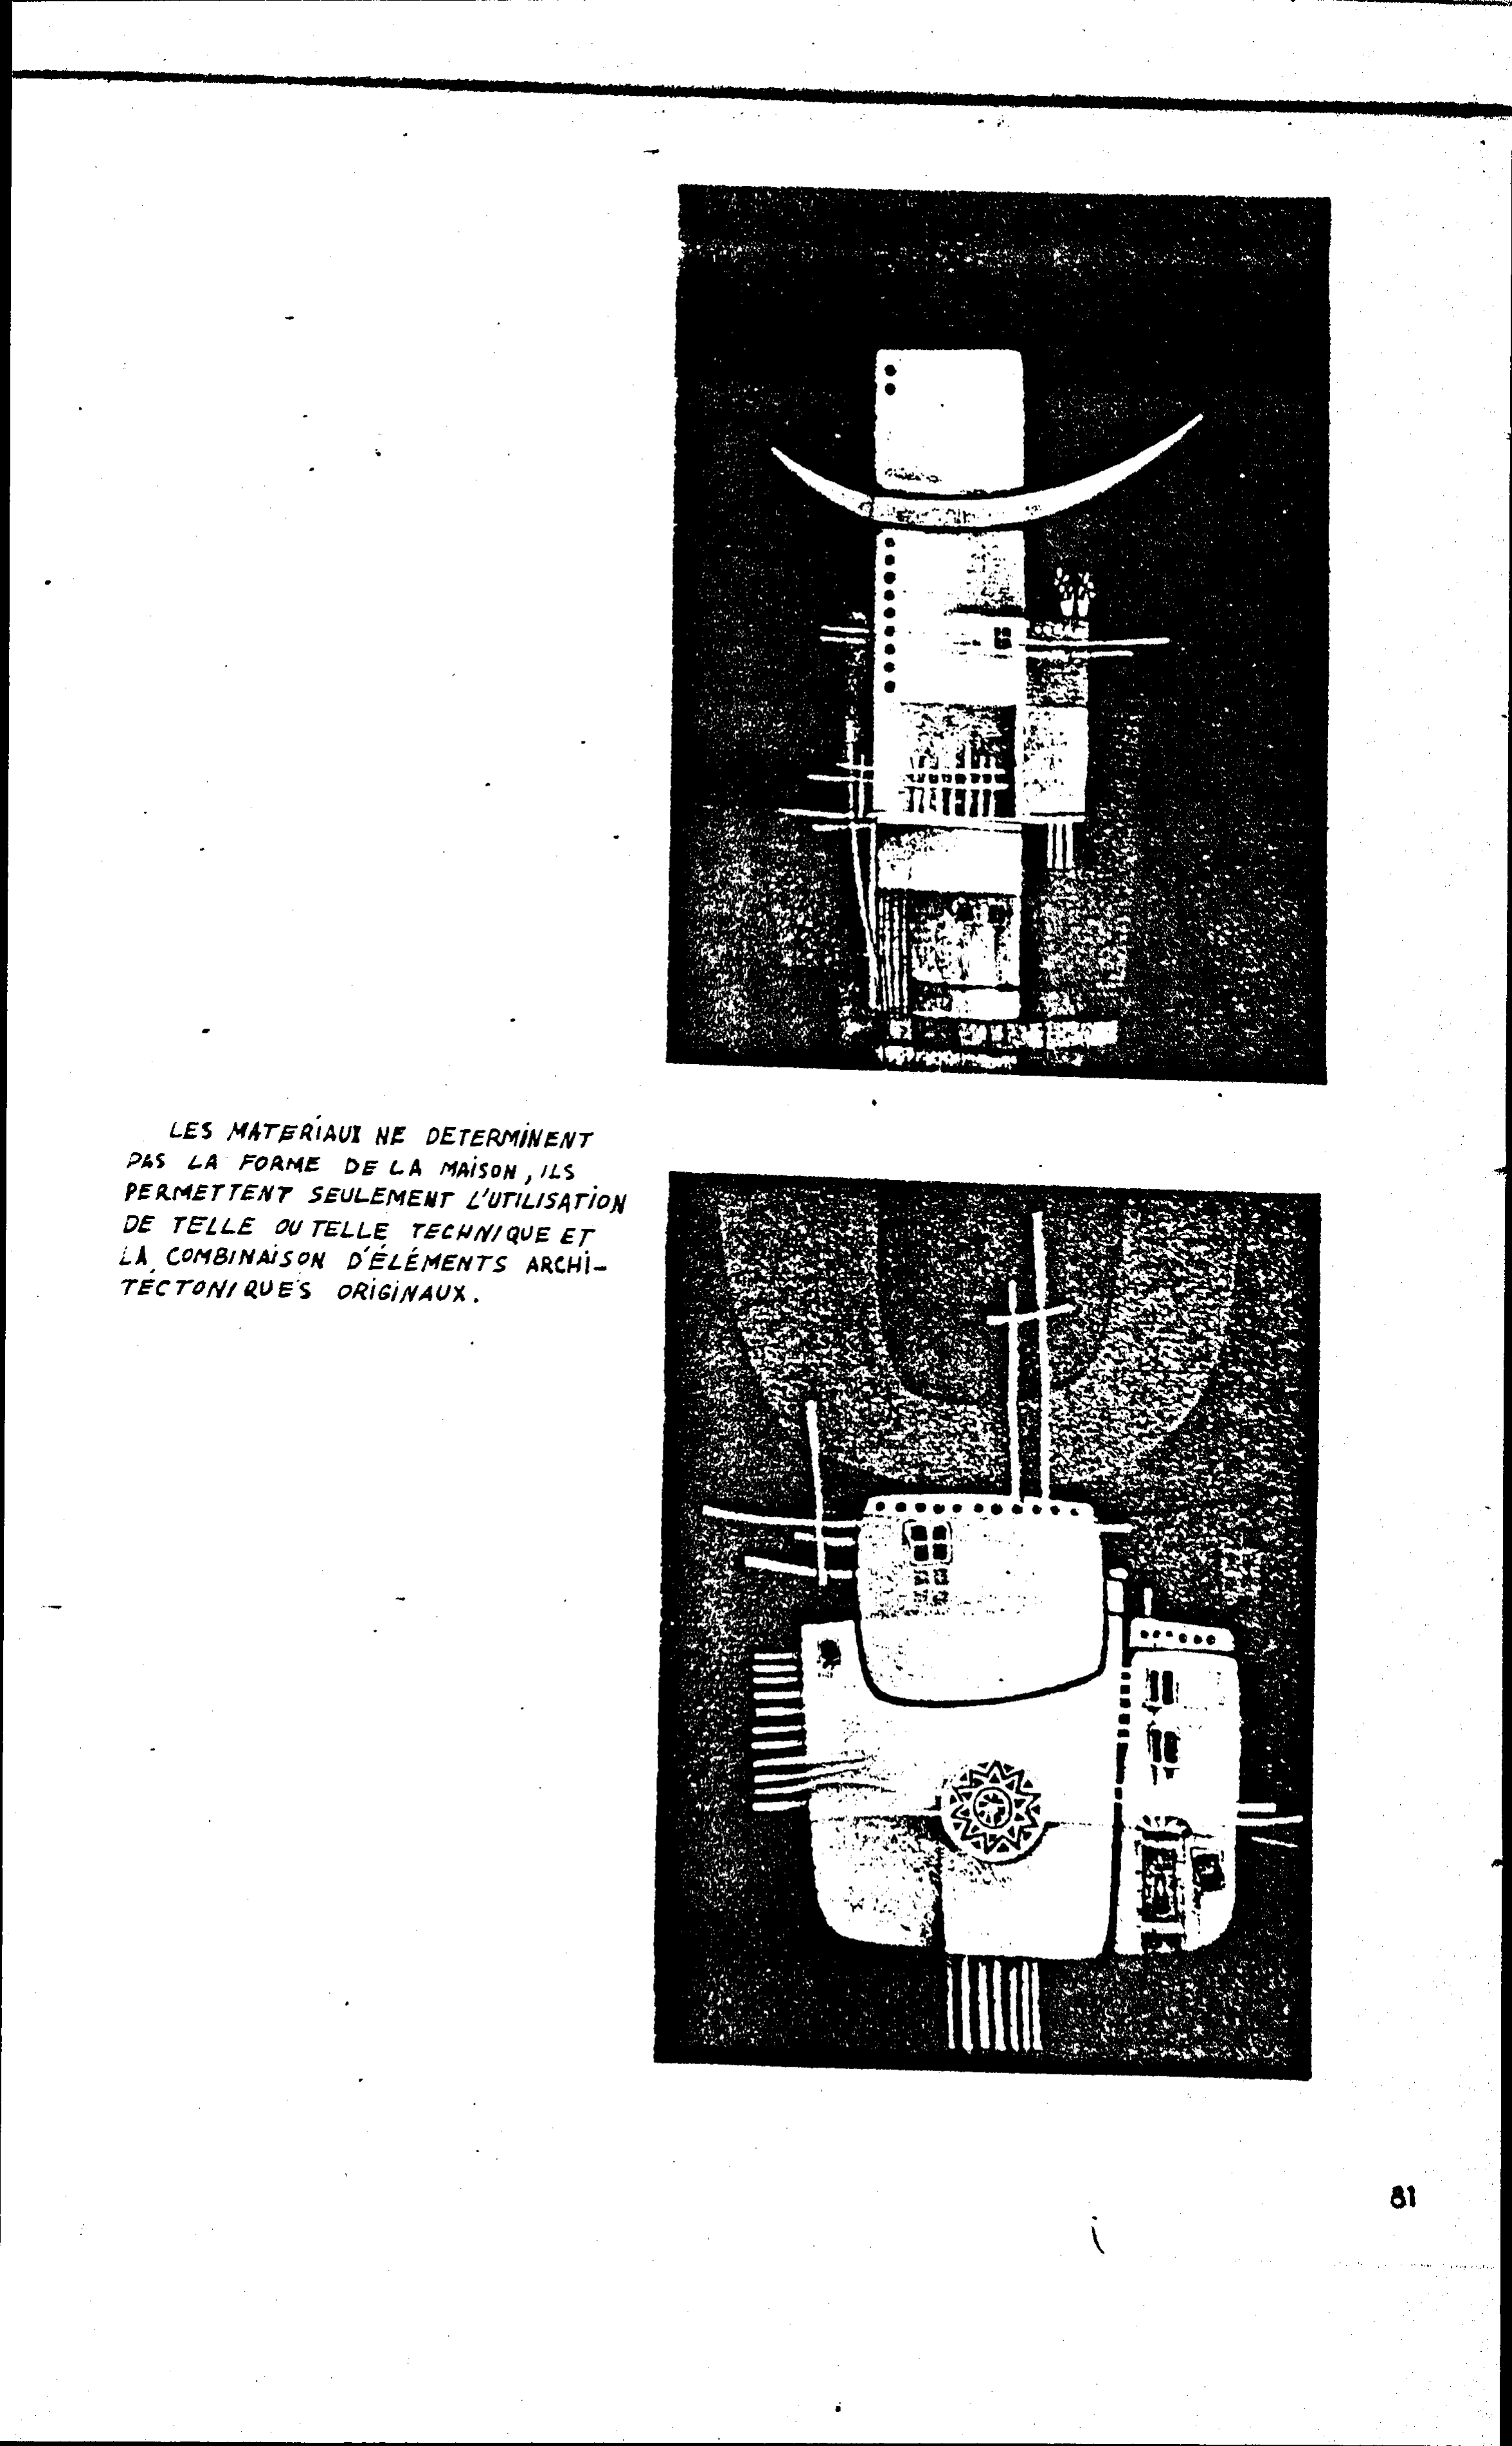 LES MATERIAUX NE DETERMINENT
PAS LA FORME DE LA MAISON, ILS
PERMETTENT SEULEMENT L'UTILISATION
DE TELLE OU TELLE TECHNIQUE ET
LA COMBINAISON D'ÉLÉMENTS ARCHI-
TECTONIQUES ORIGINAUX.
81